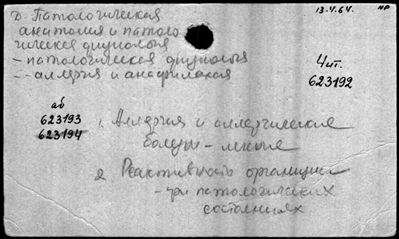 13.4.64. НР
Д. Патологическая
анатомия и патоло
гическая физиология
- патологическая физиология
-- аллергия и анафилаксия
4 чт.
623192
аб
623193
623194
1. Аллергия и аллергические
болезн-
2. Реактивность организма
- при патологических
состояниях